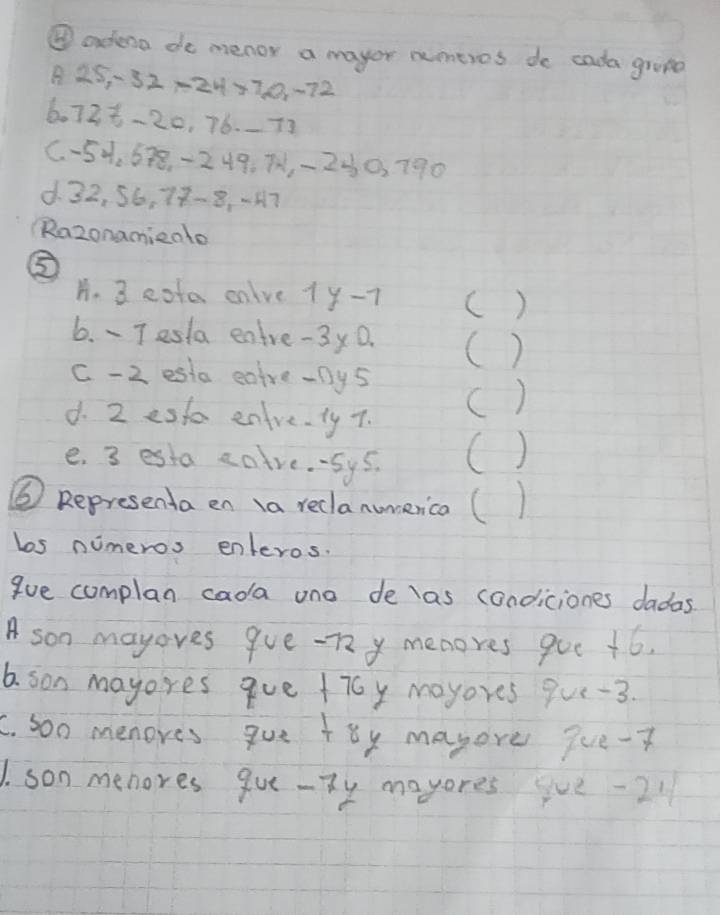 ④ ordena de menor a mayor numeros de cada grupo
A 25,-32 -24 > 7,0,-72
b. 727 -20, 76. - 73
C. -54, 678, -249, 74, -240, 790
d. 32, 56, 77 -8, -47
Razonamiento
⑤
A. 3 esta entre 1 y -7 ( )
b. -7 esta entre -3 y 0. ( )
C -2 esta entre - y 5 ( )
d. 2 esta entre -1 y 7. ( )
e. 3 esta entre. -5 y 5. ( )
⑥ Representa en la recta numerica ( )
los números enteros.
que cumplan cada una de las condiciones dadas
A son mayores que -72 y menores que +6.
b. son mayores que +76 y mayores que -3.
C. son menores que +8 y mayores que -7
d. son menores que -7 y mayores que -24